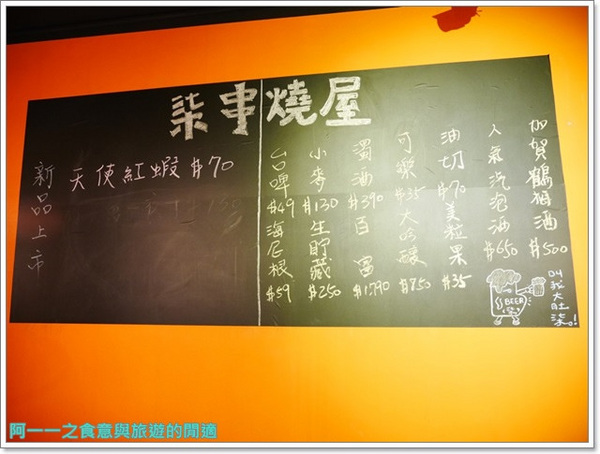 柒串燒屋
新品上市
天使紅蝦 #70
台啤 #49 海尼根 #59
小麥 #130 生貯藏 #250
濁酒 #390 百富 #1790
可樂 #35 大吟釀 #750
油切 #70 美粒果 #35
人氣汽泡酒 #650
加賀鶴梅酒 #500
BEER
阿一一之食意與旅遊的閒適